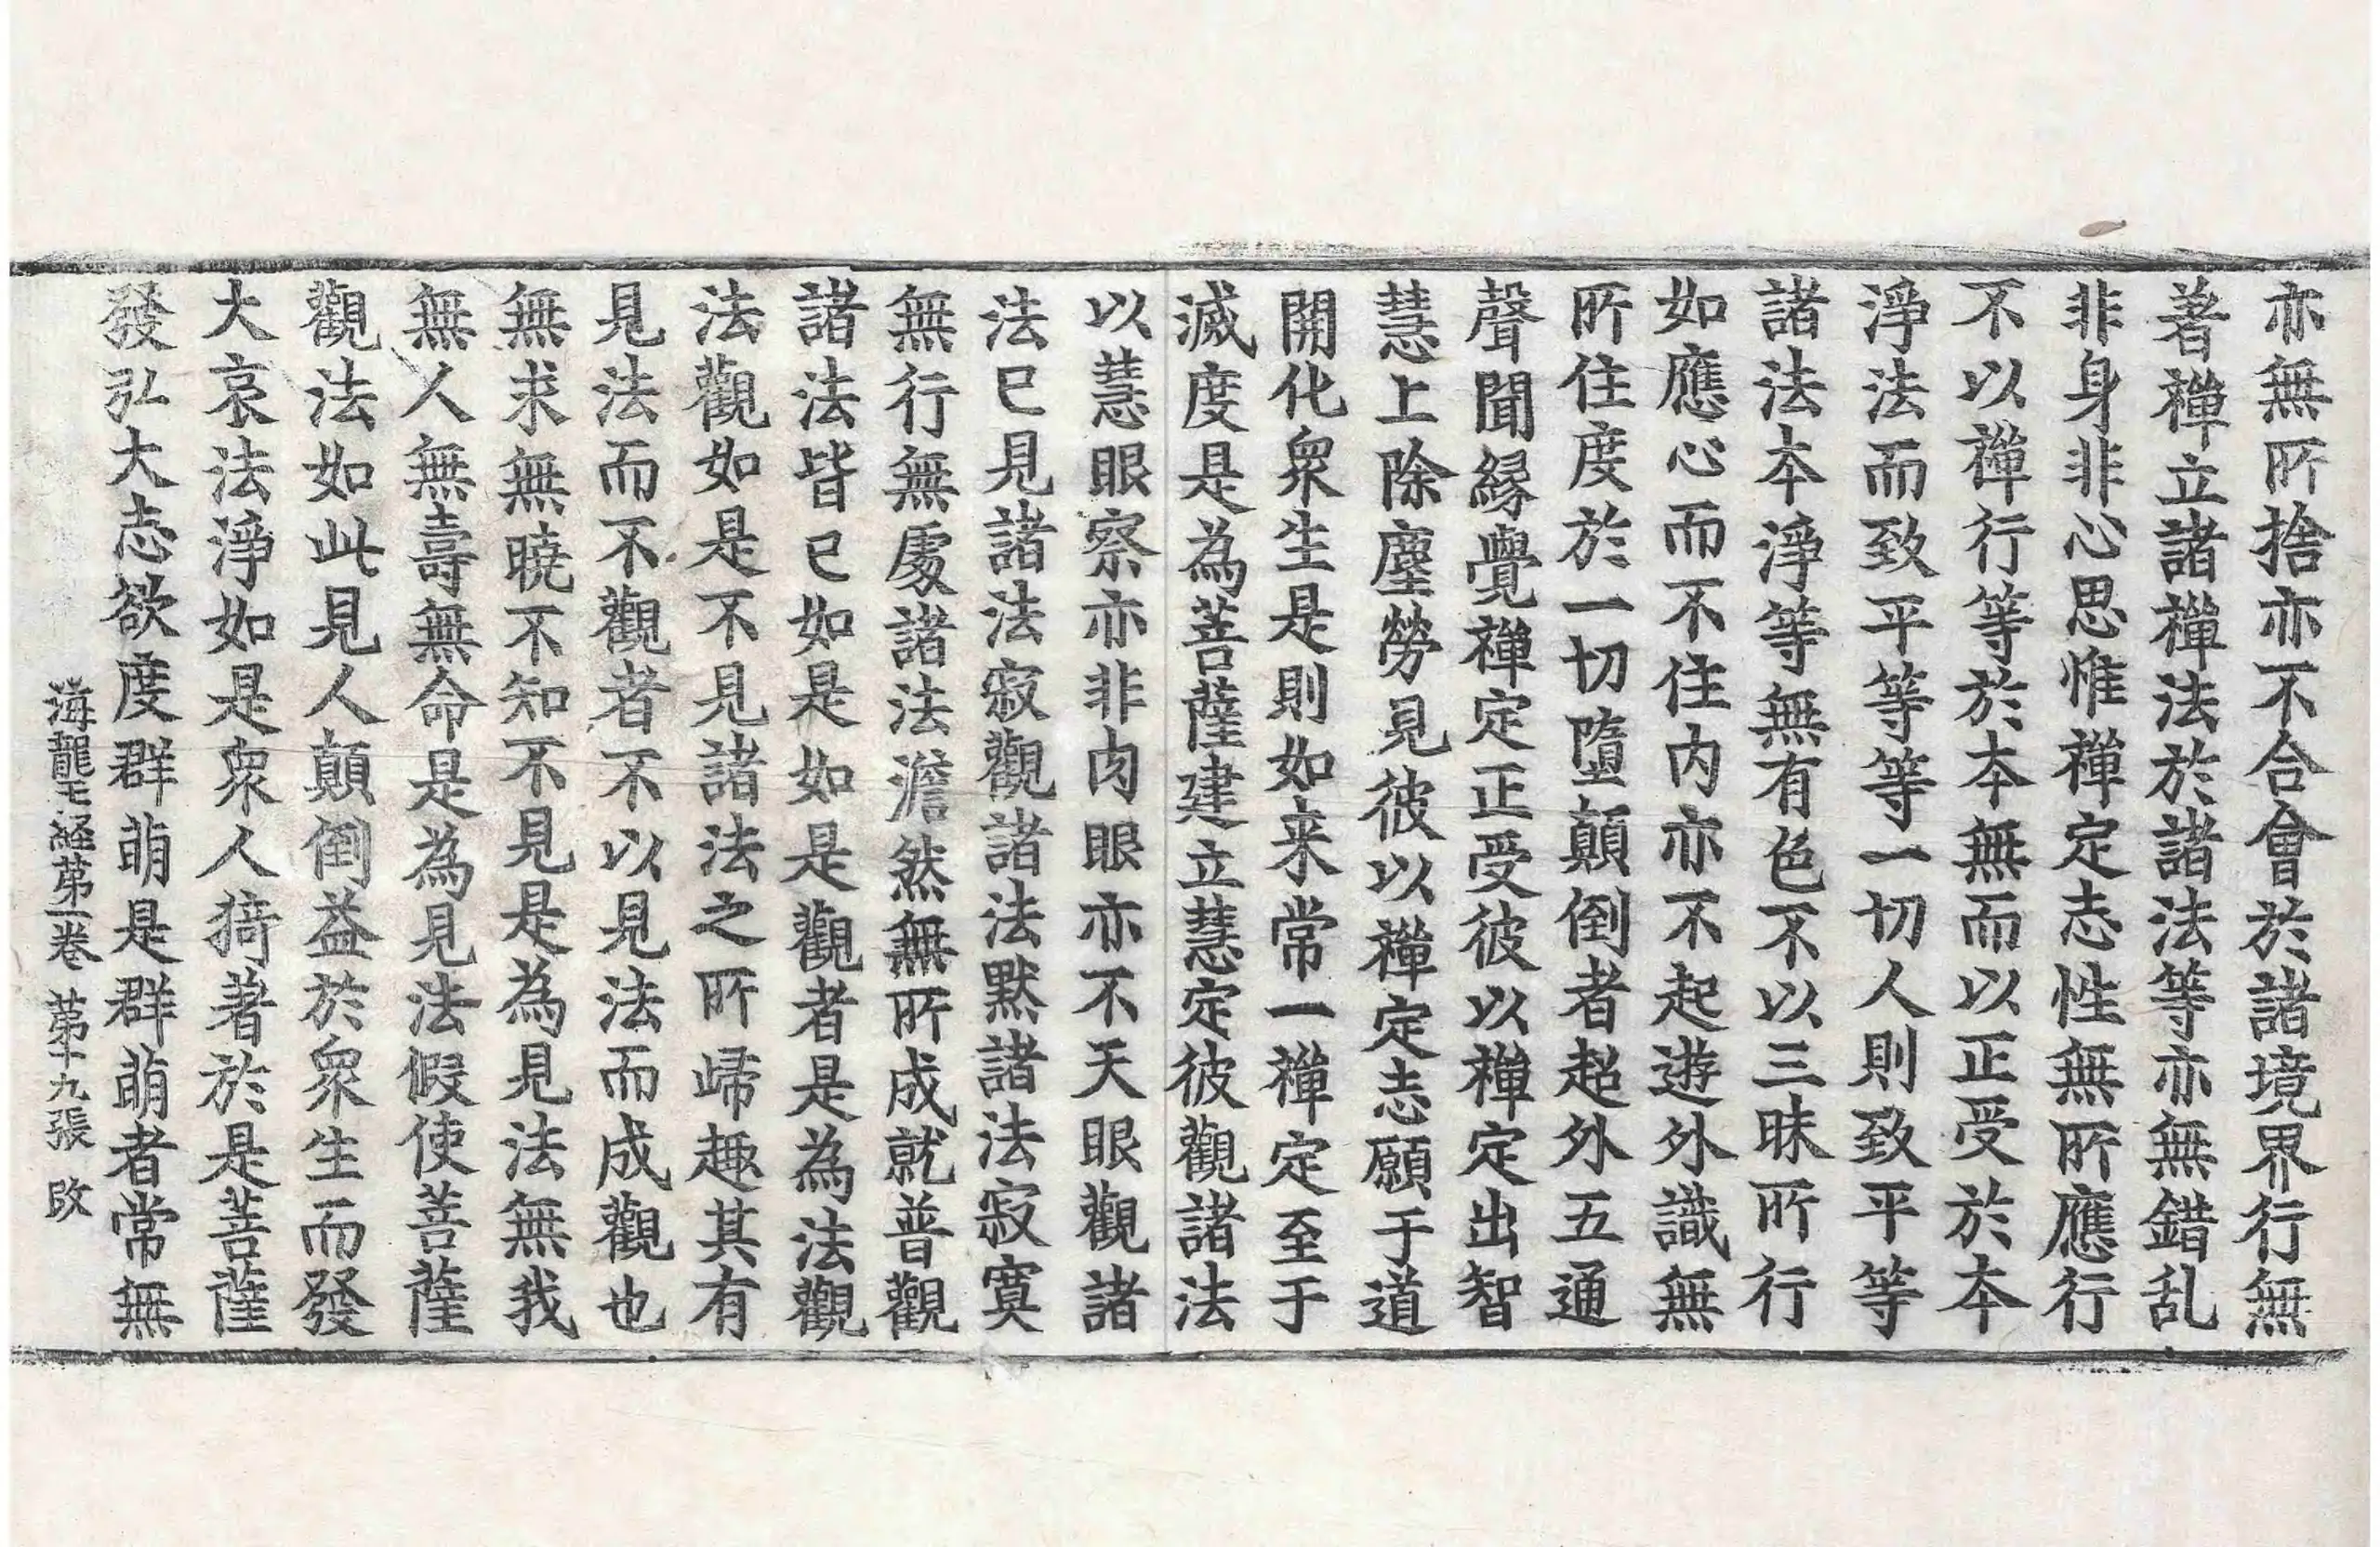 亦無所捨亦不合會於諸境界行無
著禪立諸禪法於諸法等亦無錯乱
非身非心思惟禪定志性無所應行
不以禪行等於本無而以正受於本
淨法而致平等等一切人則致平等
諸法本淨等無有色不以三昧所行
如應心而不住內亦不起遊外識無
所住度於一切墮顛倒者超外五通
聲聞緣覺禪定正受彼以禪定出智
慧上除塵勞見彼以禪定志願于道
開化衆生是則如来常一禪定至于
滅度是為菩薩建立慧定彼觀諸法
以慧眼察亦非肉眼亦不天眼觀諸
法已見諸法寂觀諸法默諸法寂寞
無行無處諸法澹然無所成就普觀
諸法皆已如是如是觀者是為法觀
法觀如是不見諸法之所歸趣其有
見法而不觀者不以見法而成觀也
無求無曉不知不見是為見法無我
無人無壽無命是為見法假使菩薩
觀法如此見人顛倒益於衆生而發
大哀法淨如是衆人猗著於是菩薩
發弘大志欲度群萌是群萌者常無
海龍王経苐一卷 苐十九張 改